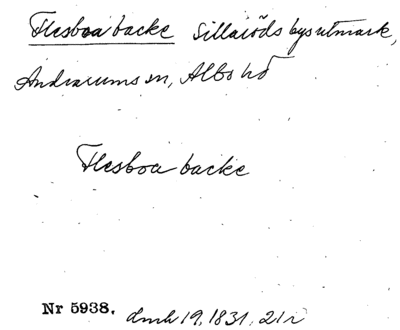 Flesboa backe Sillaröds bys utmark,
Andrarums sn, Albo hd
Flesboa backe
Nr 5938. dmh 19, 1831, 21 r